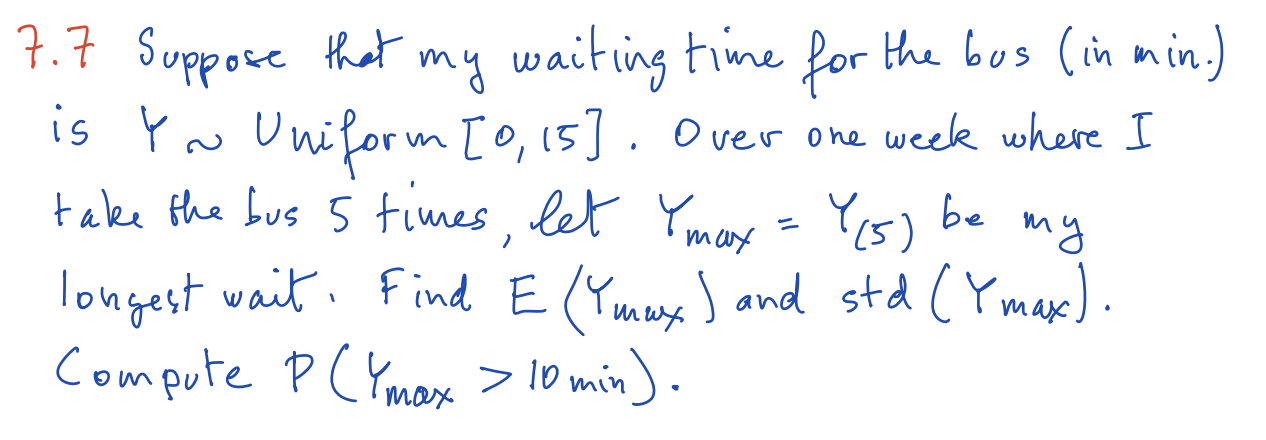 7.7 Suppose that my waiting time for the bus (in min.)
is Y ~ Uniform [0, 15]. Over one week where I
take the bus 5 times, let Y_max = Y_(5) be my
longest wait. Find E (Y_max) and std (Y_max).
Compute P (Y_max > 10 min).